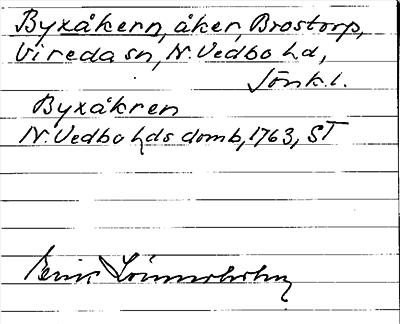 Byxåkern, åker, Brostorp,
Vireda sn, N. Vedbo hd,
Jönk. l.
Byxåkren
N. Vedbo hds domb, 1763, ST
Erik